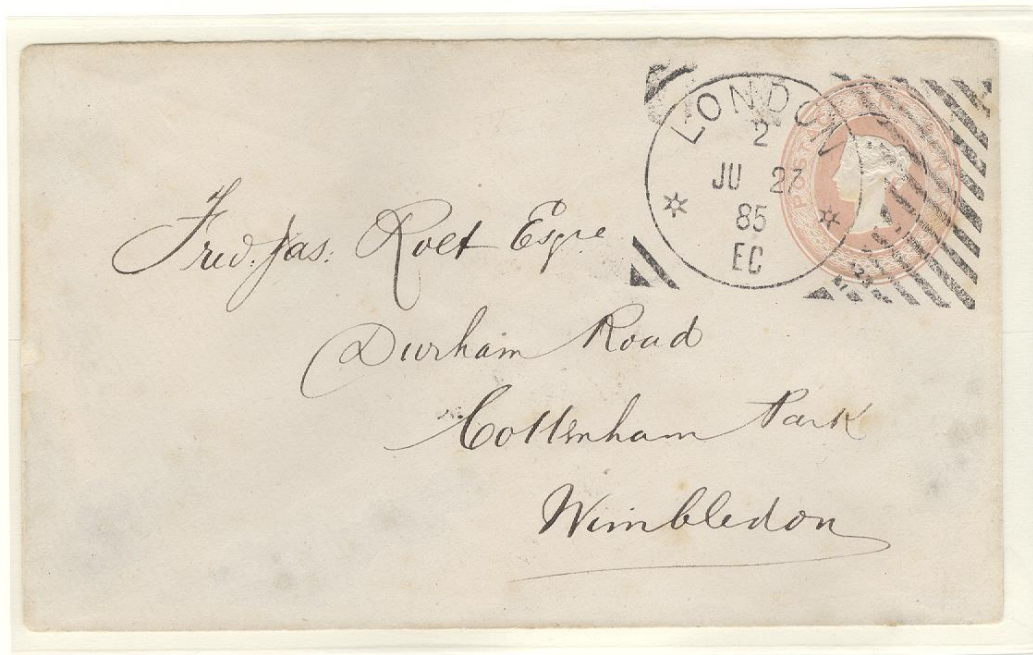 LONDON
2
JU 27
85
EC
POSTAGE
Fred. Jas. Rolt Esqre
Durham Road
Cottenham Park
Wimbledon